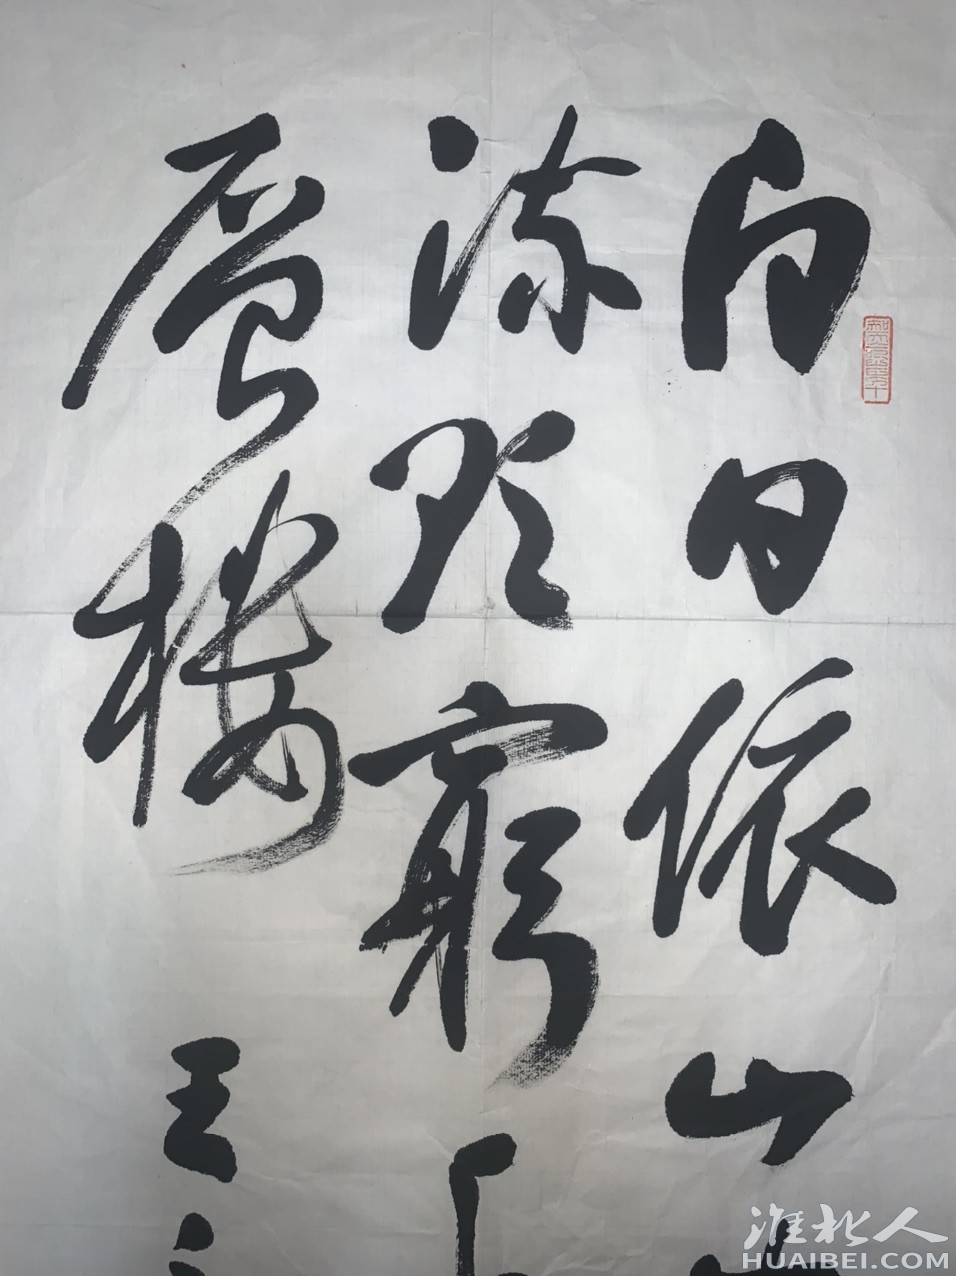 白日依山
流欲穷
层楼
王之
淮北人
HUAIBEI.COM